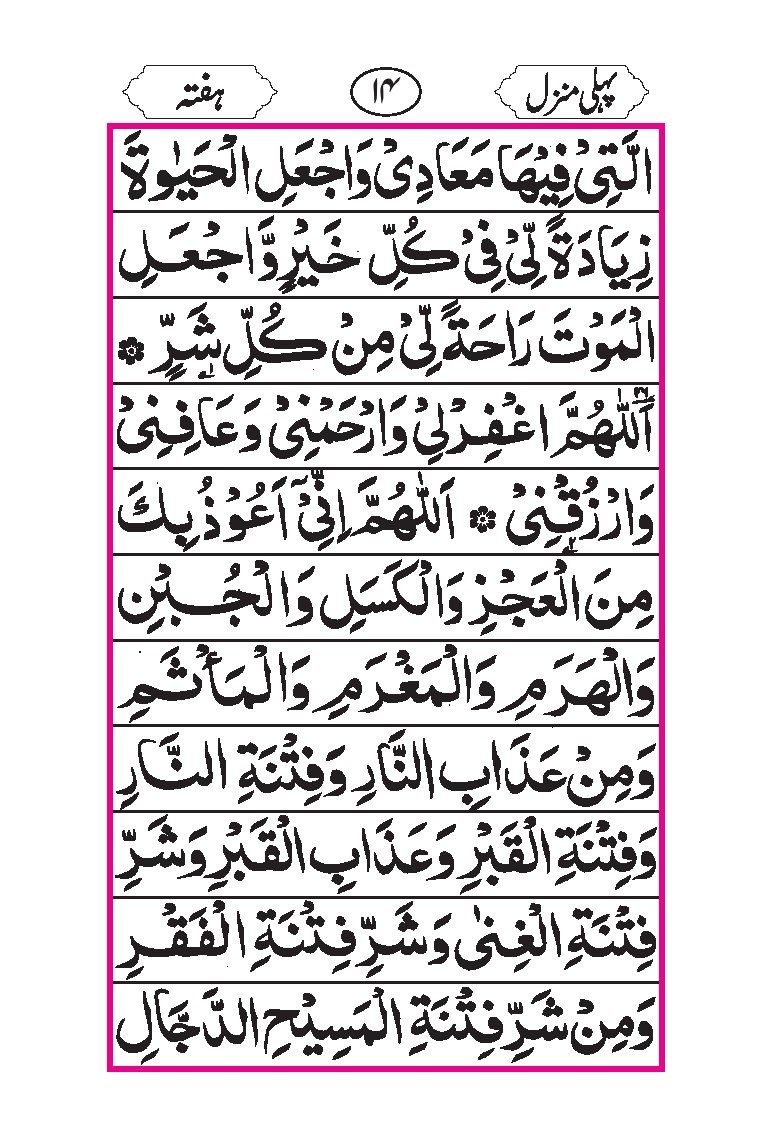 پہلی منزل ۱۴ ہفتہ
الَّتِیْ فِیْهَا مَعَادِیْ وَاجْعَلِ الْحَیٰوةَ
زِیَادَةً لِّیْ فِیْ كُلِّ خَیْرٍ وَّاجْعَلِ
الْمَوْتَ رَاحَةً لِّیْ مِنْ كُلِّ شَرٍّ ۞
اَللّٰهُمَّ اغْفِرْلِیْ وَارْحَمْنِیْ وَعَافِنِیْ
وَارْزُقْنِیْ ۞ اَللّٰهُمَّ اِنِّیْۤ اَعُوْذُ بِكَ
مِنَ الْعَجْزِ وَالْكَسَلِ وَالْجُبْنِ
وَالْهَرَمِ وَالْمَغْرَمِ وَالْمَأْثَمِ
وَمِنْ عَذَابِ النَّارِ وَفِتْنَةِ النَّارِ
وَفِتْنَةِ الْقَبْرِ وَعَذَابِ الْقَبْرِ وَشَرِّ
فِتْنَةِ الْغِنٰی وَشَرِّ فِتْنَةِ الْفَقْرِ
وَمِنْ شَرِّ فِتْنَةِ الْمَسِیْحِ الدَّجَّالِ